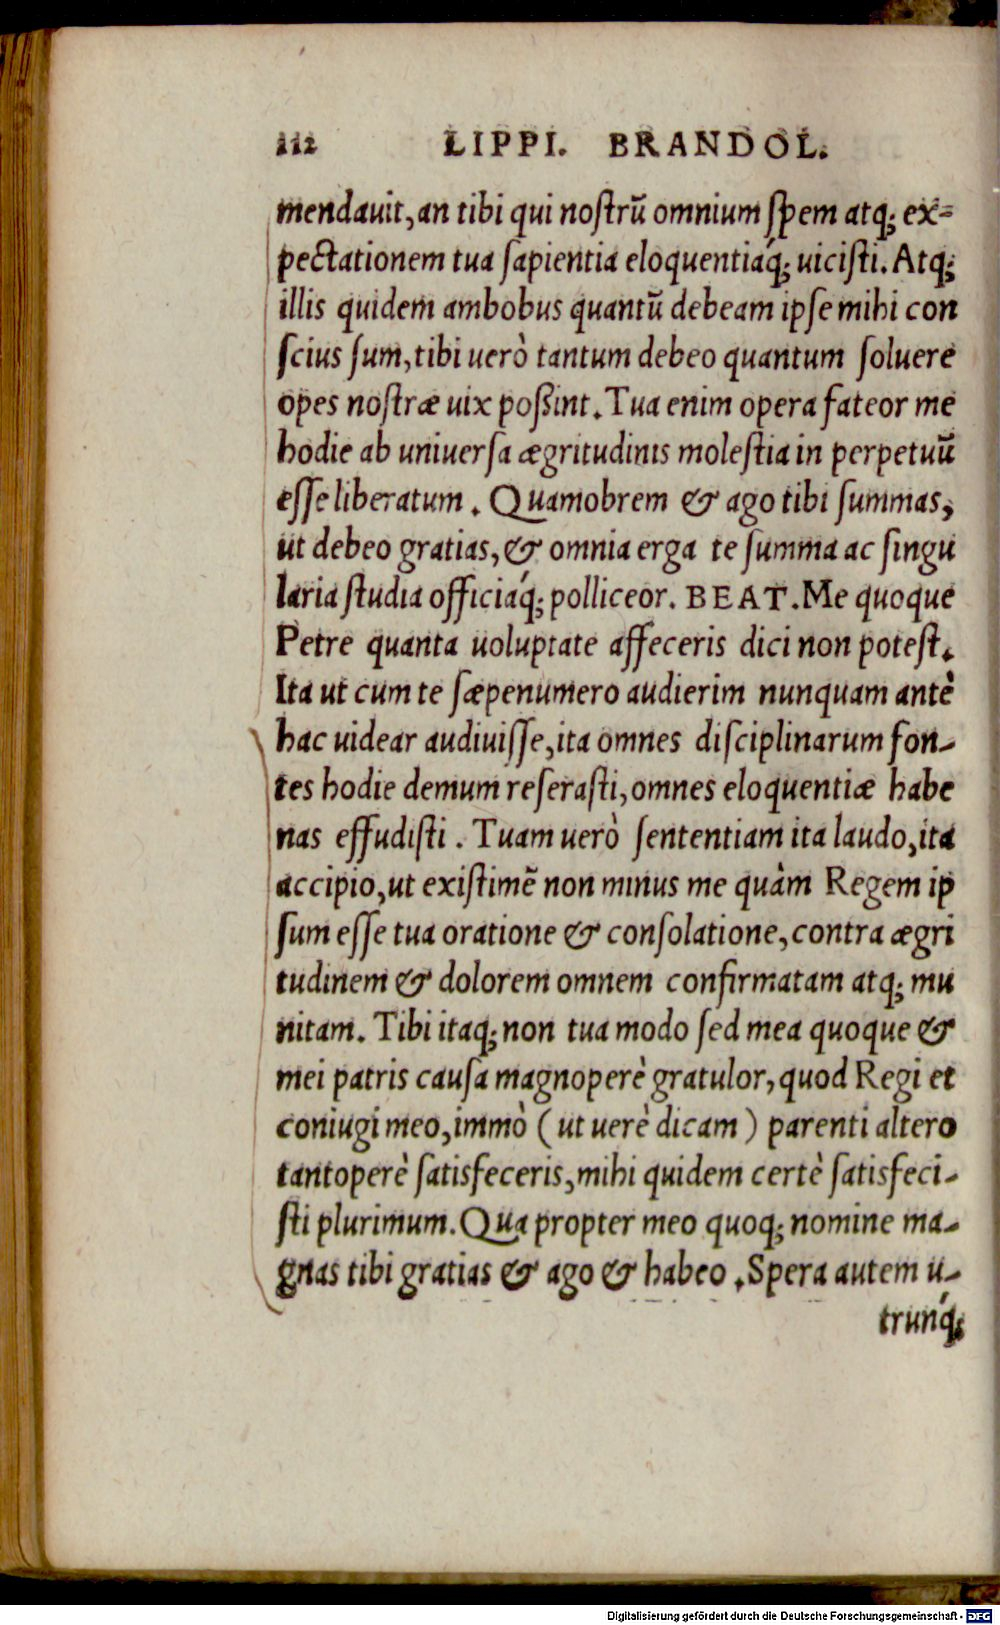 112 LIPPI. BRANDOL.
mendauit, an tibi qui nostrũ omnium spem atq; ex-
pectationem tua sapientia eloquentiáq; uicisti. Atq;
illis quidem ambobus quantũ debeam ipse mihi con
scius sum, tibi uerò tantum debeo quantum soluere
opes nostræ uix poßint. Tua enim opera fateor me
hodie ab uniuersa ægritudinis molestia in perpetuũ
esse liberatum. Quamobrem & ago tibi summas,
ut debeo gratias, & omnia erga te summa ac singu
laria studia officiáq; polliceor. BEAT. Me quoque
Petre quanta uoluptate affeceris dici non potest.
Ita ut cum te sæpenumero audierim nunquam antè
hac uidear audiuisse, ita omnes disciplinarum fon-
tes hodie demum reserasti, omnes eloquentiæ habe
nas effudisti. Tuam uerò sententiam ita laudo, ita
accipio, ut existimẽ non minus me quàm Regem ip
sum esse tua oratione & consolatione, contra ægri
tudinem & dolorem omnem confirmatam atq; mu
nitam. Tibi itaq; non tua modo sed mea quoque &
mei patris causa magnoperè gratulor, quod Regi et
coniugi meo, immò (ut uerè dicam) parenti altero
tantoperè satisfeceris, mihi quidem certè satisfeci-
sti plurimum. Qua propter meo quoq; nomine ma-
gnas tibi gratias & ago & habeo. Spera autem u-
trunq́;
Digitalisierung gefördert durch die Deutsche Forschungsgemeinschaft - DFG